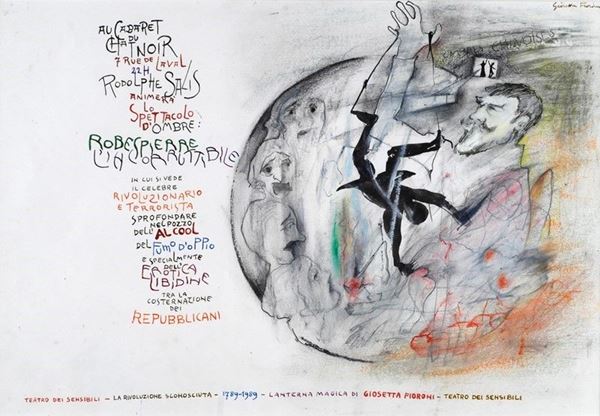 Giosetta Fioroni
AU CABARET
DU
CHAT NOIR
7 RUE DE LAVAL
22H,
RODOLPHE SALIS
ANIMERÀ
LO
SPETTACOLO
D'OMBRE:
ROBESPIERRE
L'INCORRUTTIBILE
IN CUI SI VEDE
IL CELEBRE
RIVOLUZIONARIO
E TERRORISTA
SPROFONDARE
NEL POZZO
DELL'ALCOOL
DEL FUMO D'OPPIO
E SPECIALMENTE
DELL'
EROTICA
LIBIDINE
TRA LA
COSTERNAZIONE
DEI
REPUBBLICANI
OMBRES CHINOISES
TEATRO DEI SENSIBILI - LA RIVOLUZIONE SCONOSCIUTA - 1789-1989 - LANTERNA MAGICA DI GIOSETTA FIORONI - TEATRO DEI SENSIBILI